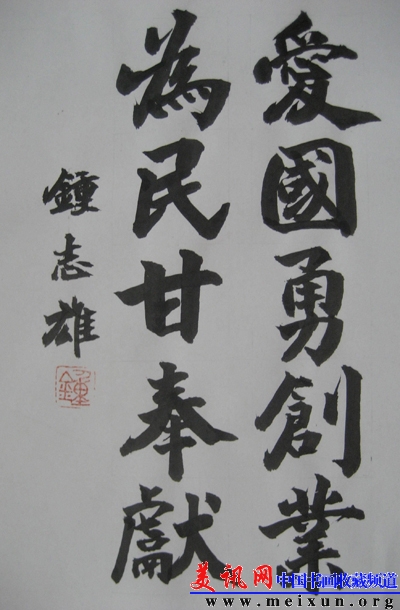 愛國勇創業
為民甘奉獻
鍾志雄
鍾
美讯网
中国书画收藏频道
www.meixun.org